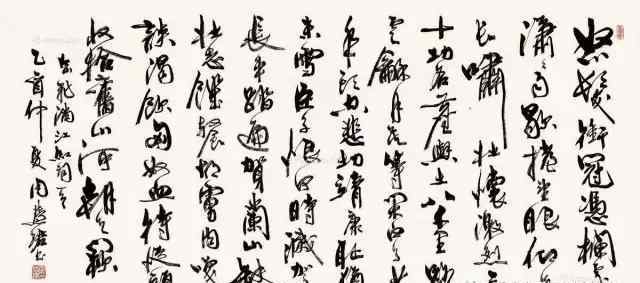 怒髮衝冠憑欄處
瀟瀟雨歇抬望眼仰天
長嘯壯懷激烈三
十功名塵與土八千里路
雲龢月莫等閑白了少
年頭空悲切靖康恥猶
未雪臣子恨何時滅駕
長車踏過賀蘭山缺
壯志饑餐胡虜肉笑
談渴飲匈奴血待從頭
收拾舊山河朝天闕
岳飛滿江紅詞一首
乙酉仲夏周慧珺書